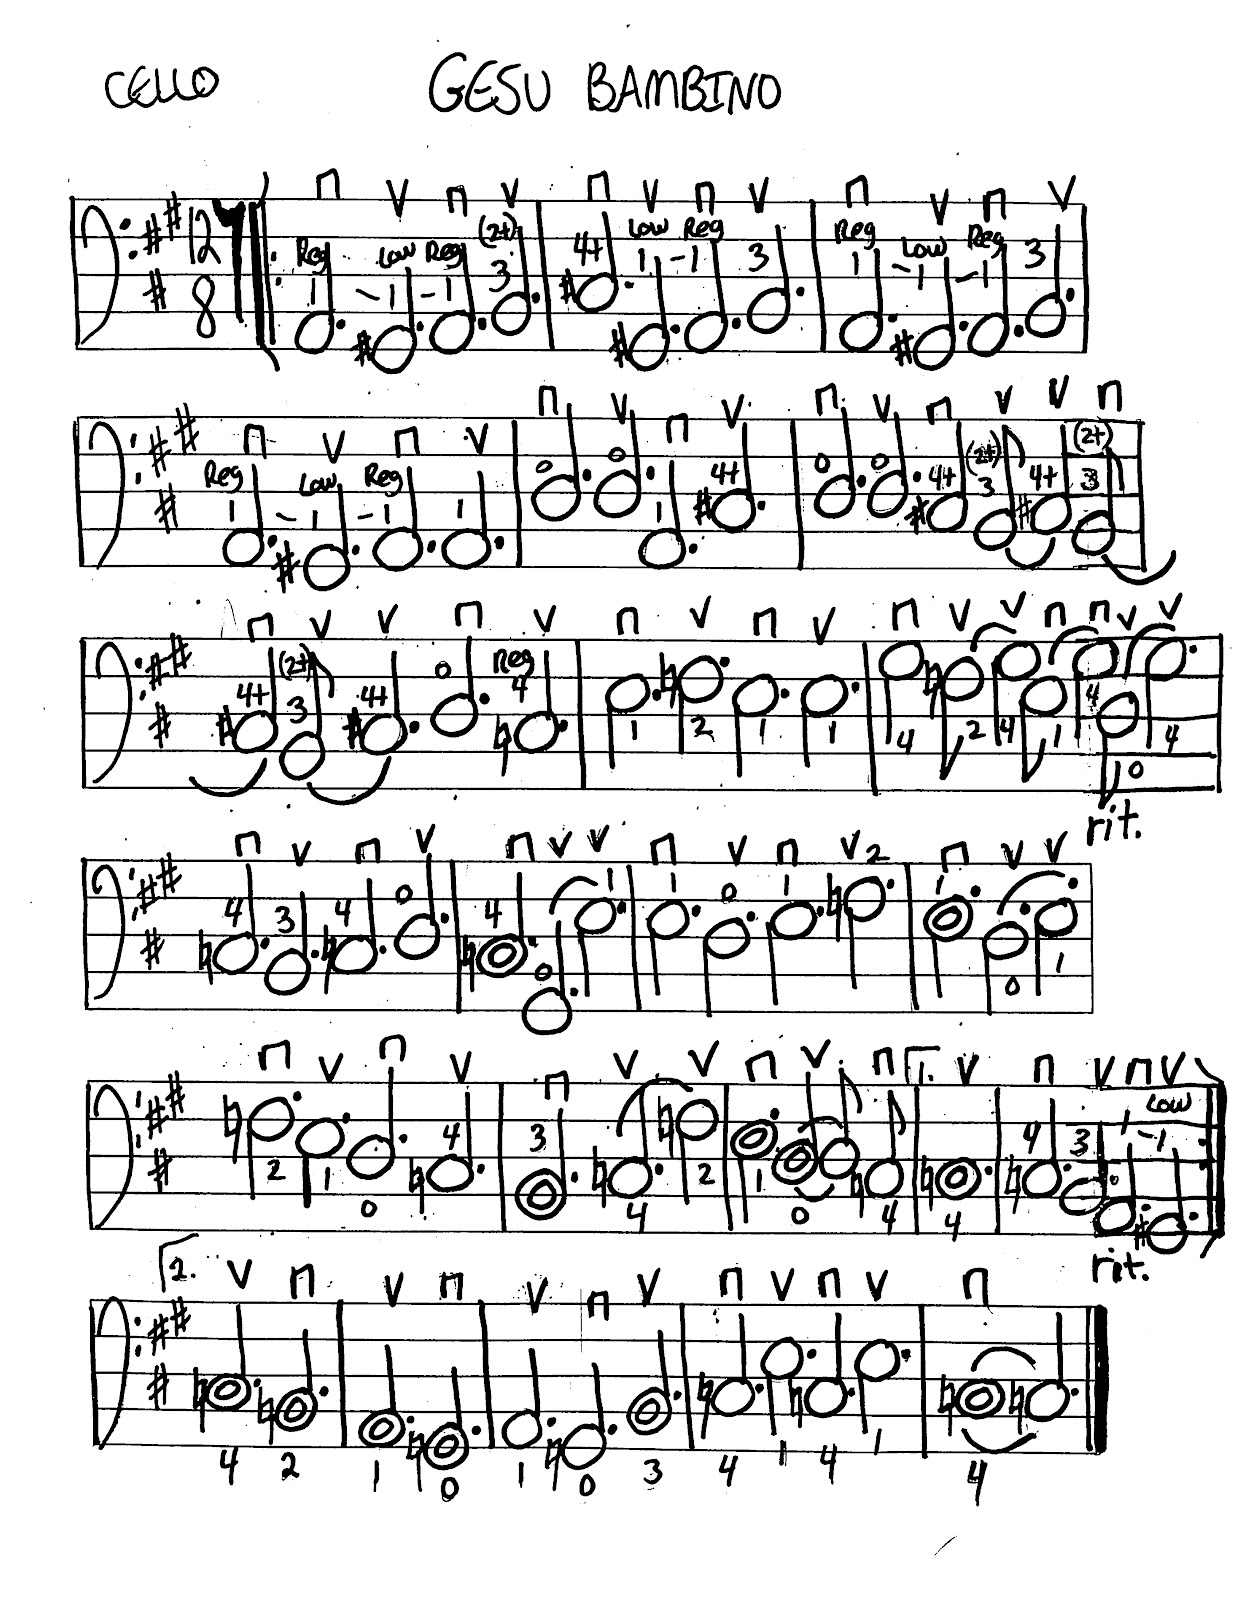 CELLO GESU BAMBINO
12 8
(2+) Low Reg
Reg Low Reg 4+ Reg Low Reg
1 -1 -1 3 1 -1 3 1 -1 -1 3
(2+) (2+)
Reg Low Reg 0 0 4+ 0 0 4+ 3 4+ 3
1 -1 -1 1 1
(2+) Reg
4+ 3 4+ 0 4 4
1 2 1 1 4 2 4 1 0 4
rit.
4 3 4 0 4 1 1 0 1 2 1
0 0 1
1. Low
4 3 4 3 1 -1
2 1 0 4 2 1 0 4 4
rit.
2.
4 2 1 0 1 0 3 4 1 4 1 4